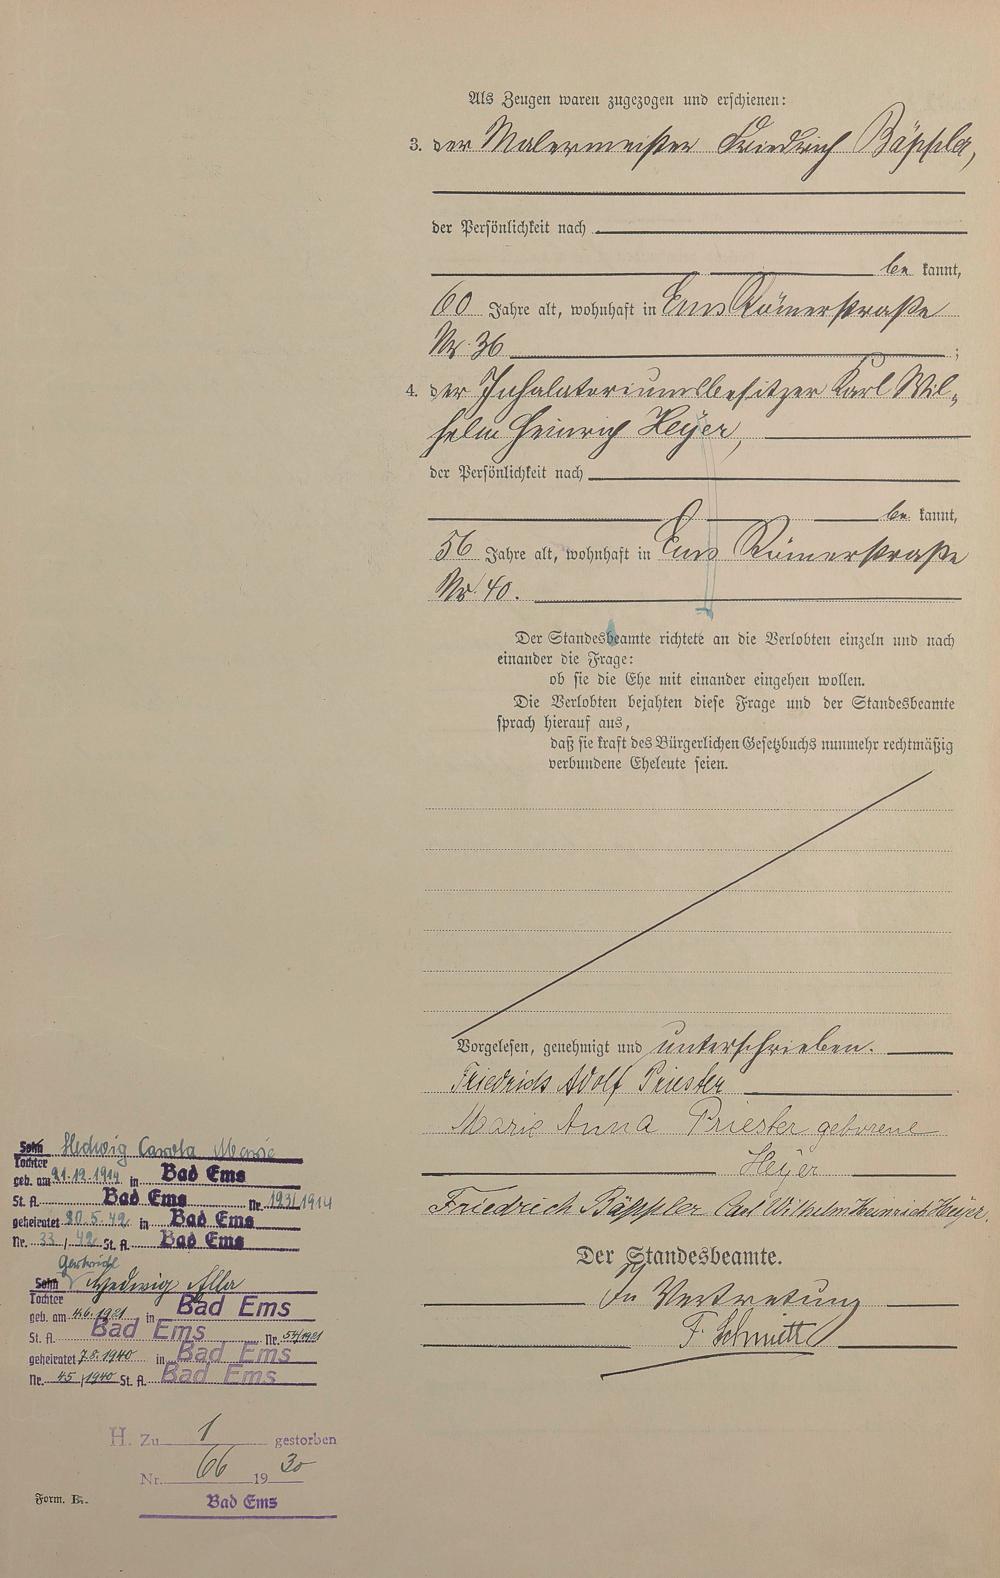 Als Zeugen waren zugezogen und erschienen:
3. der Malermeister Friedrich Bäppler,
der Persönlichkeit nach
be kannt,
60 Jahre alt, wohnhaft in Ems Römerstraße
Nr. 36 ;
4. der Inhalatoriumsbesitzer Karl Wil-
helm Heinrich Heyer,
der Persönlichkeit nach
be kannt,
56 Jahre alt, wohnhaft in Ems Römerstraße
Nr. 40.
Der Standesbeamte richtete an die Verlobten einzeln und nach
einander die Frage:
ob sie die Ehe mit einander eingehen wollen.
Die Verlobten bejahten diese Frage und der Standesbeamte
sprach hierauf aus,
daß sie kraft des Bürgerlichen Gesetzbuchs nunmehr rechtmäßig
verbundene Eheleute seien.
Vorgelesen, genehmigt und unterschrieben.
Friedrich Adolf Priester
Marie Anna Priester geborene
Heyer
Friedrich Bäppler Carl Wilhelm Heinrich Heyer.
Der Standesbeamte.
In Vertretung
F. Schmitt
Sohn Hedwig Carola Marie
Tochter
geb. am 21.12.1914 in Bad Ems
St. A. Bad Ems Nr. 193/1914
geheiratet 30.5.42 in Bad Ems
Nr. 33 / 42 St. A. Bad Ems
Gertrud
Sohn Hedwig Ella
Tochter
geb. am 4.6.1921 in Bad Ems
St. A. Bad Ems Nr. 54/1921
geheiratet 7.8.1940 in Bad Ems
Nr. 45 / 1940 St. A. Bad Ems
H. Zu 1 gestorben
Nr. 66 19 30
Bad Ems
Form. B.